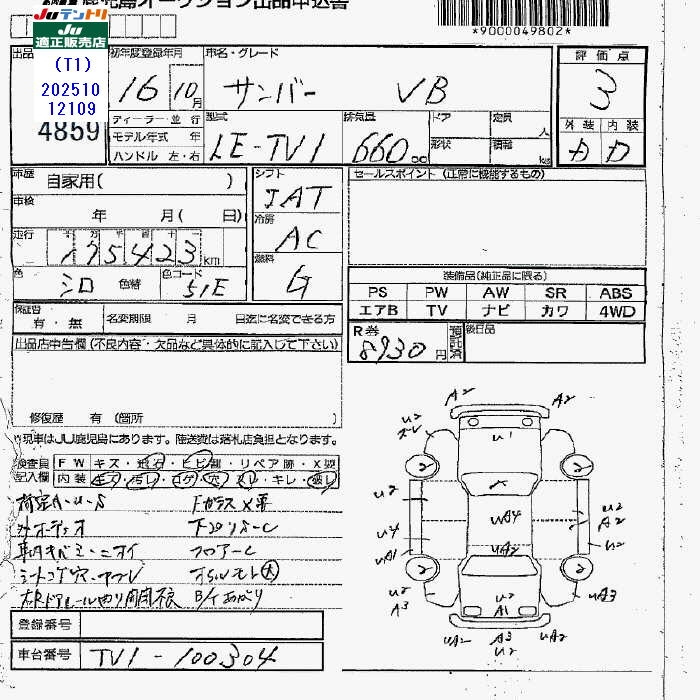 鹿児島オークション出品申込書
Juテントリ
JU
適正販売店
(T1)
202510
12109
*9000049802*
出品
4859
初年度登録年月
16 10月
車名・グレード
サンバー VB
評価点
3
外装 内装
D
ディーラー・並行
モデル年式 年
ハンドル 左・右
型式
LE-TV1
排気量
660 cc
ドア
形状
定員 人
積載 kg
車歴 自家用( )
車検 年 月( 日)
走行 175423 KM
色 シロ 色替
色コード 51E
シフト
IAT
冷房
AC
燃料
G
セールスポイント (正常に機能するもの)
装備品(純正品に限る)
PS PW AW SR ABS
エアB TV ナビ カワ 4WD
R券
8930円
預託済
後日品
保証書
有・無
名変期限 月 日迄に名変できる方
出品店申告欄(不良内容・欠品など具体的に記入して下さい)
修復歴 有(箇所 )
*現車はJU鹿児島にあります。陸送費は落札店負担となります。
検査員
記入欄
FW キズ・飛石・ヒビ割・リペア跡・X要
内装 キズ・汚レ・コゲ・穴・スレ・キレ・破レ
荷室A・U・S
Fガラス X要
下廻りS-C
フロアーC
登録番号
車台番号 TV1-100304
A2
A2
U2
U1
2
2
U2
U4
UA1
UA4
U2
A2
U2
2
2
U2
A3
U2
A1
UA3
UA2
A3
U2
UA2